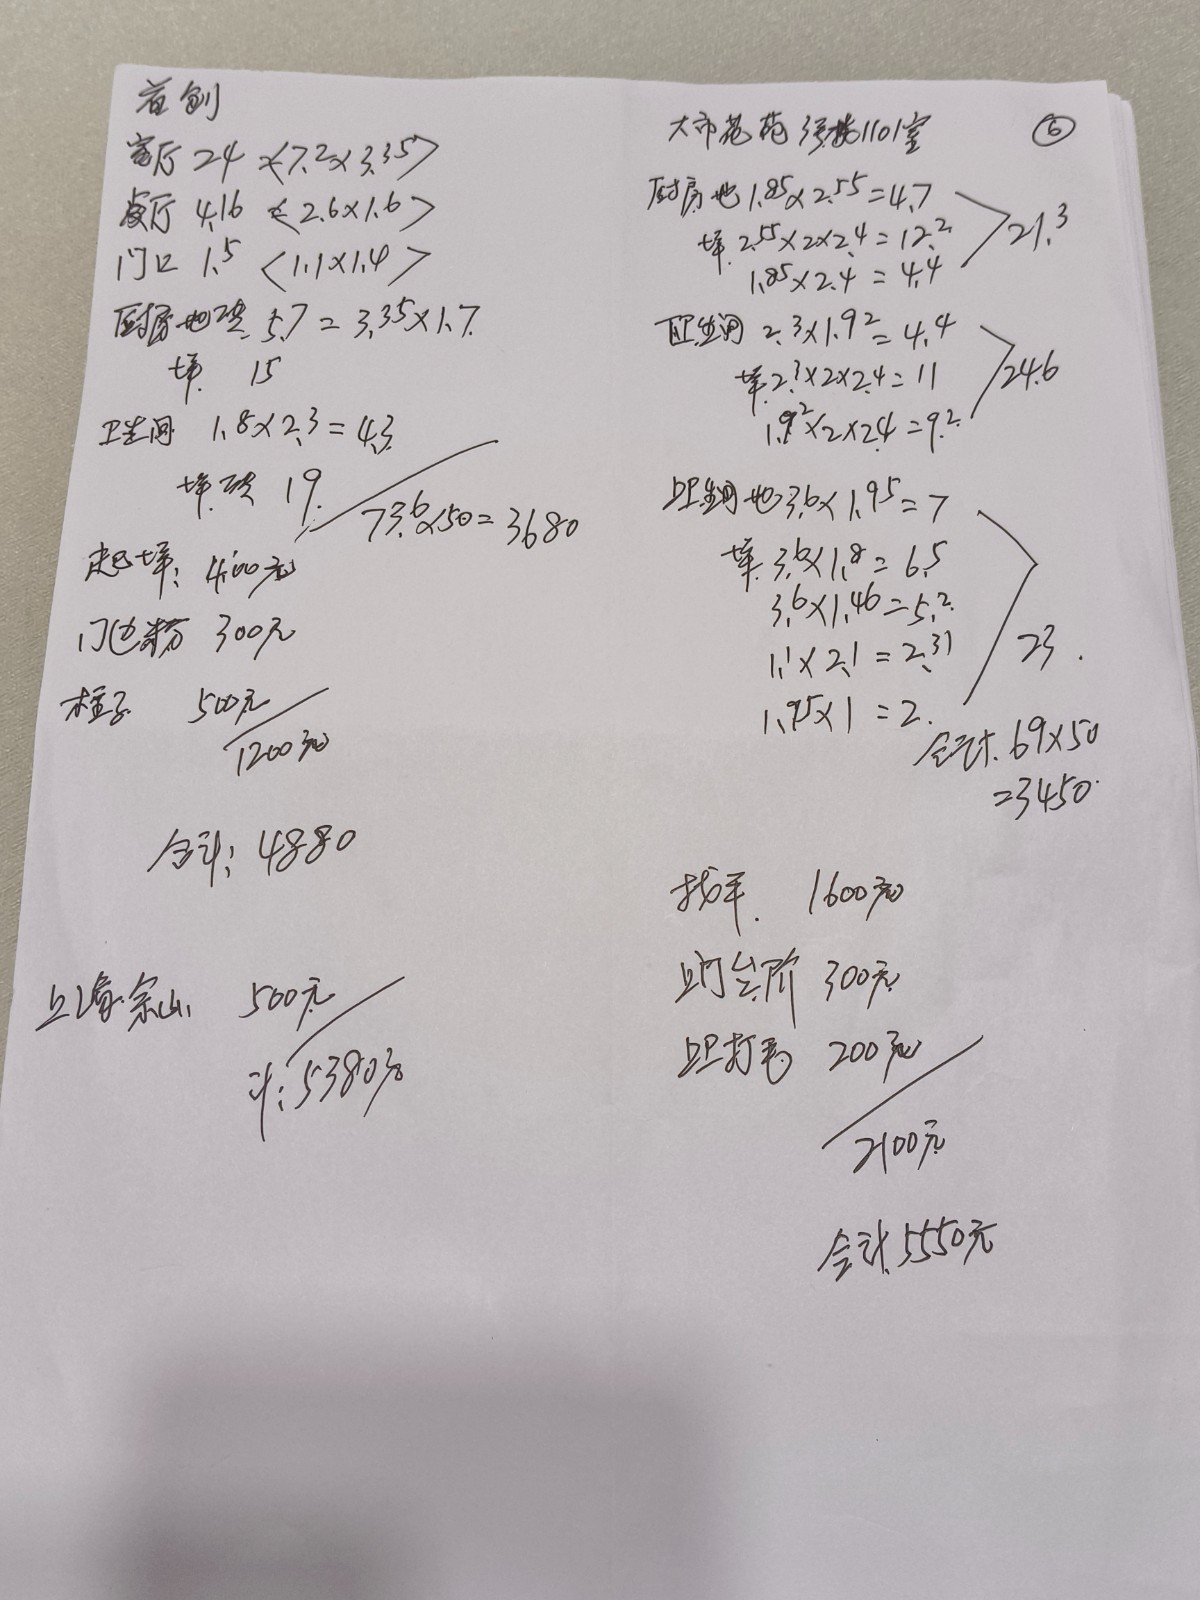 首创
客厅 24 <7.2×3.35>
餐厅 4.16 <2.6×1.6>
门口 1.5 <1.1×1.4>
厨房地砖 5.7=3.35×1.7
墙 15
卫生间 1.8×2.3=4.3
墙砖 19
73.6×50=3680
起墙: 400元
门边粉 300元
柱子 500元
1200元
合计: 4880
上海 500元
计: 5380元
大市花苑 楼1101室 ⑥
厨房地 1.85×2.55=4.7
墙 2.55×2×2.4=12.2
1.85×2.4=4.4
21.3
卫生间 2.3×1.92=4.4
墙 2.3×2×2.4=11
1.92×2×2.4=9.2
24.6
卫生间地 3.6×1.95=7
墙 3.6×1.8=6.5
3.6×1.46=5.2
1.1×2.1=2.31
1.95×1=2
23
合计 69×50
=3450
找平 1600元
门台阶 300元
打毛 200元
2100元
合计 5550元